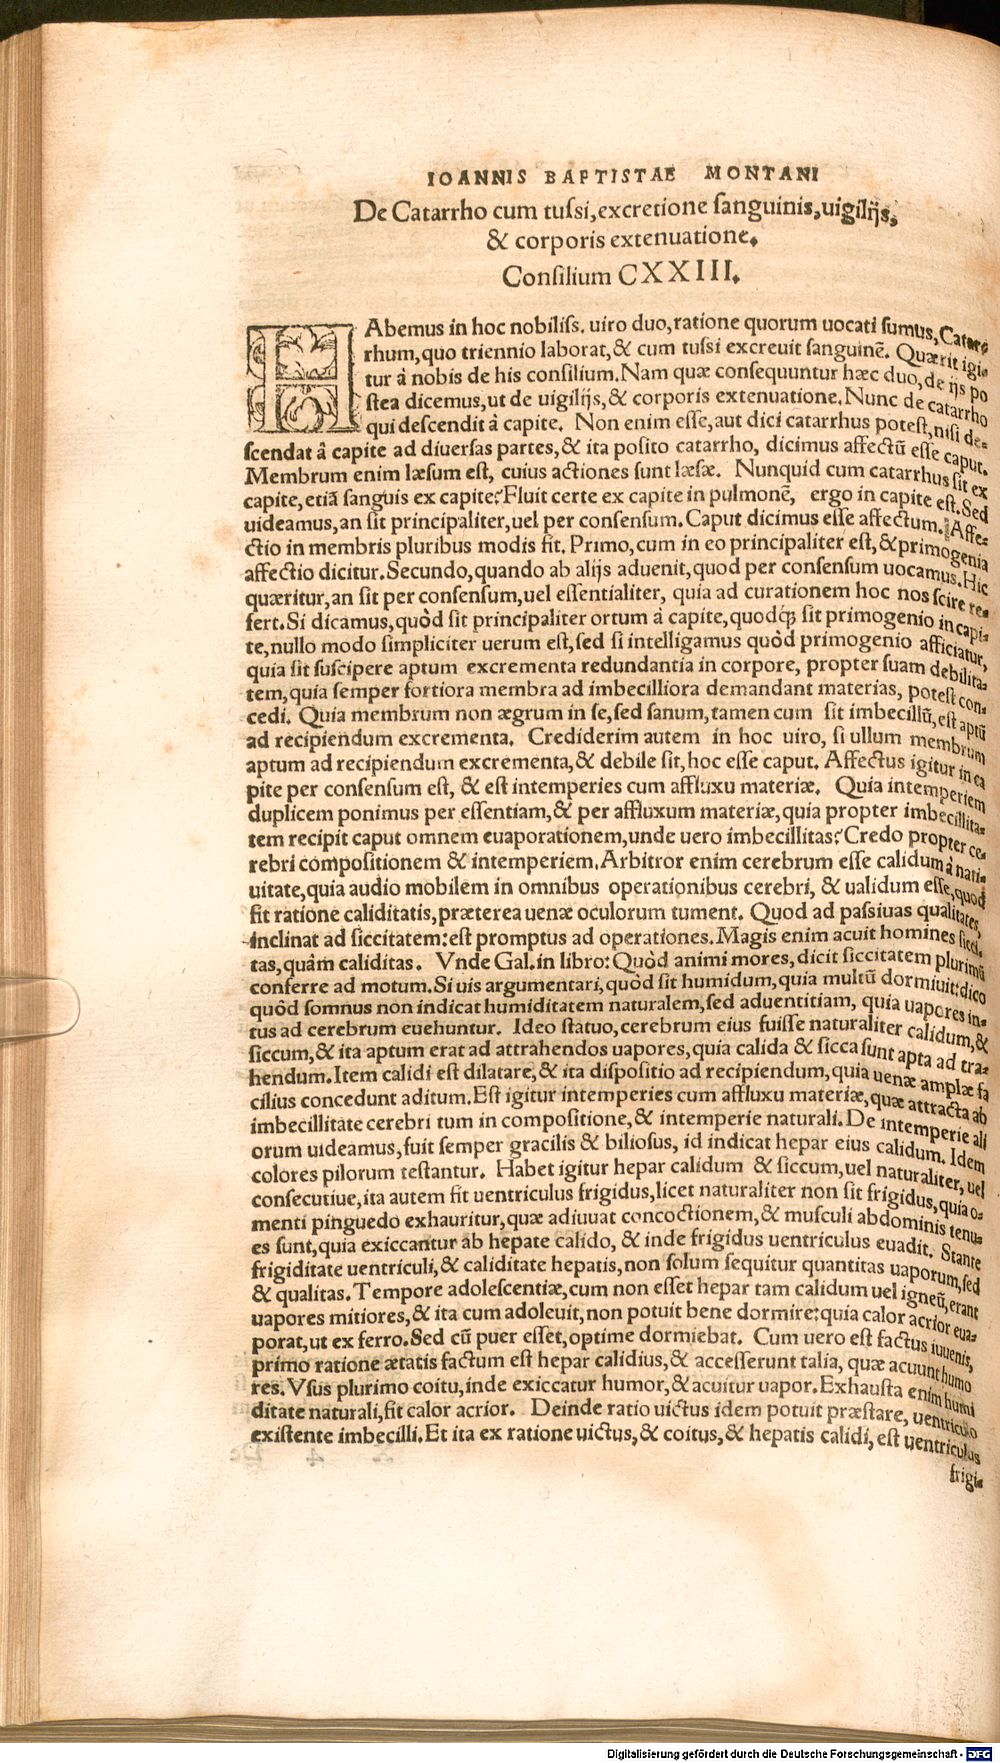 IOANNIS BAPTISTAE MONTANI
De Catarrho cum tussi, excretione sanguinis, uigilijs,
& corporis extenuatione.
Consilium CXXIII.
HAbemus in hoc nobiliss. uiro duo, ratione quorum uocati sumus, Catar⸗
rhum, quo triennio laborat, & cum tussi excreuit sanguinẽ. Quærit igi⸗
tur à nobis de his consilium. Nam quæ consequuntur hæc duo, de ijs po
stea dicemus, ut de uigilijs, & corporis extenuatione. Nunc de catarrho
qui descendit à capite. Non enim esse, aut dici catarrhus potest, nisi de⸗
scendat â capite ad diuersas partes, & ita posito catarrho, dicimus affectũ esse caput.
Membrum enim læsum est, cuius actiones sunt læsæ. Nunquid cum catarrhus sit ex
capite, etiã sanguis ex capite? Fluit certe ex capite in pulmonẽ, ergo in capite est. Sed
uideamus, an sit principaliter, uel per consensum. Caput dicimus esse affectum. Affe⸗
ctio in membris pluribus modis fit. Primo, cum in eo principaliter est, & primogenia
affectio dicitur. Secundo, quando ab alijs aduenit, quod per consensum uocamus. Hic
quæritur, an sit per consensum, uel essentialiter, quia ad curationem hoc nos scire re⸗
fert. Si dicamus, quòd sit principaliter ortum à capite, quodq́; sit primogenio in capi⸗
te, nullo modo simpliciter uerum est, sed si intelligamus quòd primogenio afficiatur,
quia sit suscipere aptum excrementa redundantia in corpore, propter suam debilita⸗
tem, quia semper fortiora membra ad imbecilliora demandant materias, potest con⸗
cedi. Quia membrum non ægrum in se, sed sanum, tamen cum sit imbecillũ, est aptũ
ad recipiendum excrementa. Crediderim autem in hoc uiro, si ullum membrum
aptum ad recipiendum excrementa, & debile sit, hoc esse caput. Affectus igitur in ca
pite per consensum est, & est intemperies cum affluxu materiæ. Quia intemperiem
duplicem ponimus per essentiam, & per affluxum materiæ, quia propter imbecillita⸗
tem recipit caput omnem euaporationem, unde uero imbecillitas? Credo propter ce⸗
rebri compositionem & intemperiem. Arbitror enim cerebrum esse calidum à nati⸗
uitate, quia audio mobilem in omnibus operationibus cerebri, & ualidum esse, quod
fit ratione caliditatis, præterea uenæ oculorum tument. Quod ad passiuas qualitates,
inclinat ad siccitatem: est promptus ad operationes. Magis enim acuit homines sicci⸗
tas, quâm caliditas. Vnde Gal. in libro: Quòd animi mores, dicit siccitatem plurimũ
conferre ad motum. Si uis argumentari, quòd sit humidum, quia multũ dormiuit: dico
quôd somnus non indicat humiditatem naturalem, sed aduentitiam, quia uapores in⸗
tus ad cerebrum euehuntur. Ideo statuo, cerebrum eius fuisse naturaliter calidum, &
siccum, & ita aptum erat ad attrahendos uapores, quia calida & sicca sunt apta ad tra⸗
hendum. Item calidi est dilatare, & ita dispositio ad recipiendum, quia uenæ amplæ fa
cilius concedunt aditum. Est igitur intemperies cum affluxu materiæ, quæ attracta ab
imbecillitate cerebri tum in compositione, & intemperie naturali. De intemperie ali
orum uideamus, fuit semper gracilis & biliosus, id indicat hepar eius calidum. Idem
colores pilorum testantur. Habet igitur hepar calidum & siccum, uel naturaliter, uel
consecutiue, ita autem fit uentriculus frigidus, licet naturaliter non sit frigidus, quia o⸗
menti pinguedo exhauritur, quæ adiuuat concoctionem, & musculi abdominis tenu⸗
es sunt, quia exiccantur ab hepate calido, & inde frigidus uentriculus euadit. Stante
frigiditate uentriculi, & caliditate hepatis, non solum sequitur quantitas uaporum, sed
& qualitas. Tempore adolescentiæ, cum non esset hepar tam calidum uel igneũ, erant
uapores mitiores, & ita cum adoleuit, non potuit bene dormire: quia calor acrior eua⸗
porat, ut ex ferro. Sed cũ puer esset, optime dormiebat. Cum uero est factus iuuenis,
primo ratione ætatis factum est hepar calidius, & accesserunt talia, quæ acuunt humo
res. Vsus plurimo coitu, inde exiccatur humor, & acuitur uapor. Exhausta enim humi
ditate naturali, fit calor acrior. Deinde ratio uictus idem potuit præstare, uentriculo
existente imbecilli. Et ita ex ratione uictus, & coitus, & hepatis calidi, est uentriculus
frigi⸗
Digitalisierung gefördert durch die Deutsche Forschungsgemeinschaft - DFG